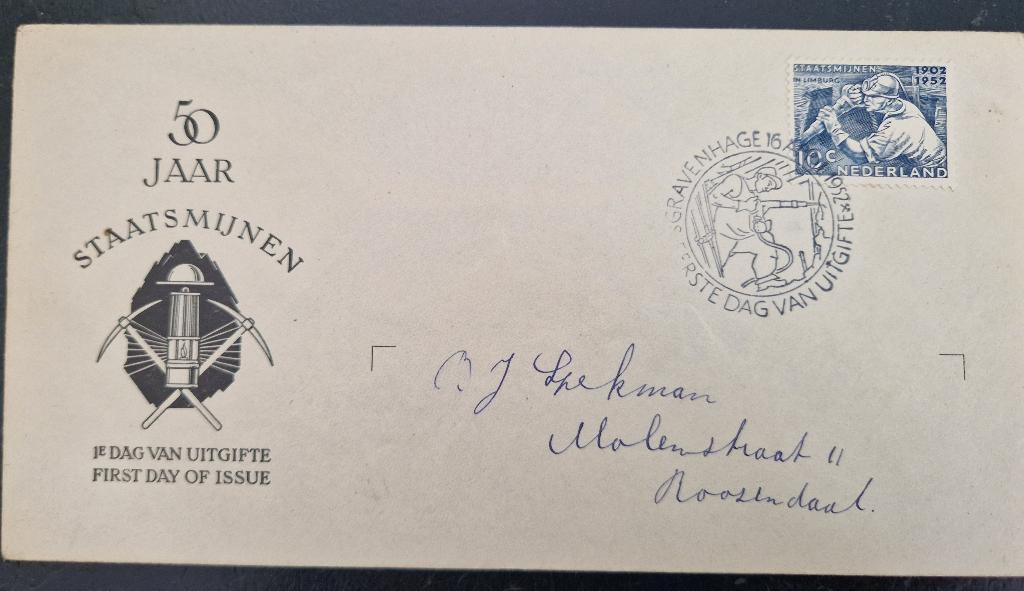 50
JAAR
STAATSMIJNEN
1E DAG VAN UITGIFTE
FIRST DAY OF ISSUE
STAATSMIJNEN
IN LIMBURG
1902
1952
10c
NEDERLAND
'SGRAVENHAGE 16 1952*
EERSTE DAG VAN UITGIFTE*
J Spekman
Molenstraat 11
Roosendaal.